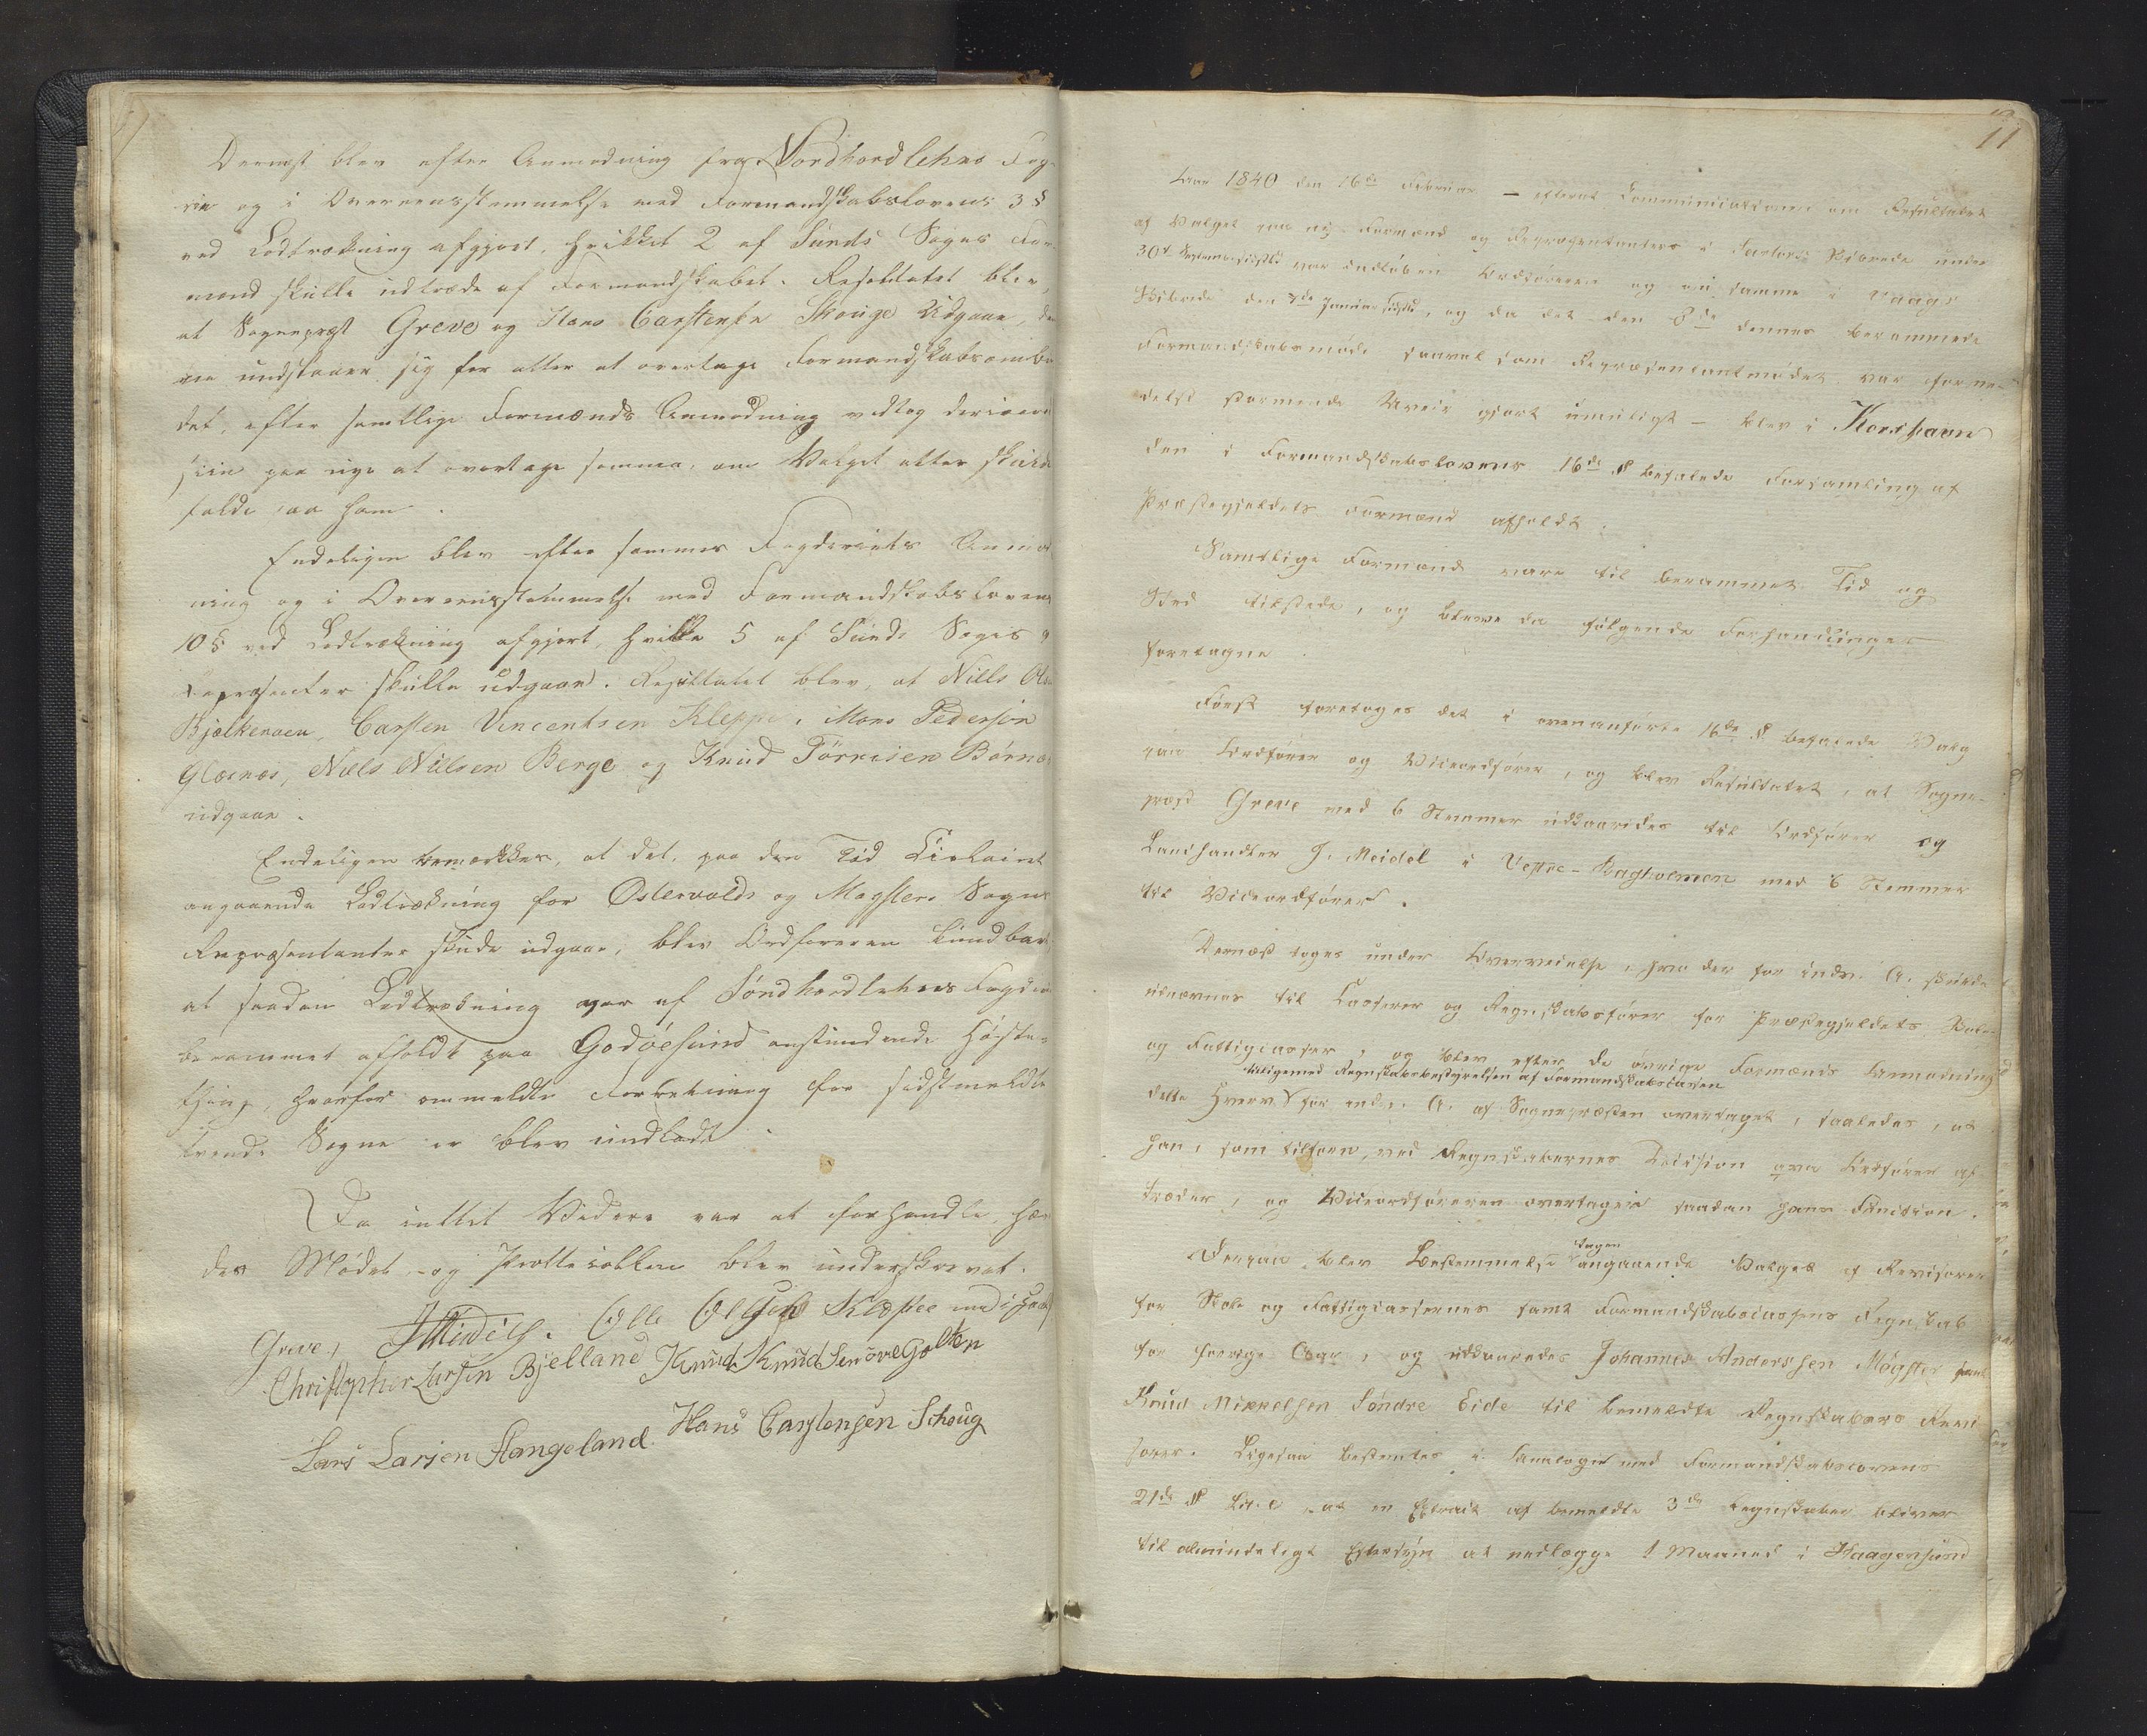 Dernæst blev efter Anmodning fra Nordhordlehns Fog-
rie og i Overeensstemmelse med Formandskabslovens 3 §
ved Lodtrækning afgjort, hvilket 2 af Sunds Sogns For-
mænd skulle udtræde af Formandskabet. Resultatet blev,
at Sognepræst Greve og Hans Carstensen Skouge Udgaae,
undslaaer sig for atter at overtage Formandskabsombu
det, efter samtlige Formænds Anmodning vedtog derimod
paa nye at overtage samme, om Valget atter skulde
falde paa ham.
Endeligen blev efter samme Fogderiets Anmod
ning og i Overeensstemmelse med Formandskabslovens
10 § ved Lodtrækning afgjort, hvilke 5 af Sunds Sogns
Repræsenter skulle udgaae. Resultatet blev, at Nills Ols
Bjelkeroen, Carsten Vincentsen Kleppe, Mons Pedersen
Glesnæs, Niels Nielsen Berge og Knud Törrisen Börnæs
udgaae.
Endeligen bemærkes, at det, paa den Tid Circulairet
angaaende Lodtrækning for Ostervolds og Møgsters Sogns
Repræsentanter skulde udgaae, blev Ordføreren kundbart
at saadan Lodtrækning var af Söndhordlehns Fogderi
berammet afholdt paa Godöesund anstundende Høste-
thing, hvorfor ommeldte Forretning for sidstmeldte
tvende Sogne er blev undladt.
Da intet Videre var at forhandle, hæ
des Mødet og Protocollen blev underskrevet.
Greve, JMeidell. Olle Olsen Klepsee med i Haand
Christopher Larsen Bjelland Knud Knudsen övre Golten
Lars Larsen Hangeland. Hans Carstensen Schoug
11
Aar 1840 den 16de Februar – efterat Communicationen om Resultatet
af Valget paa nye Formænd og Repræsentanters i Sartors Skibrede under
30t Septembr sidstl. var indløben Ordføreren og om samme i Vaags
Skibrede den 7de Januar sidstl., og da det den 8de dennes berammede
Formandskabsmøde saavel som Repræsentantmødet var forme-
delst stormende Uveir gjort umuligt – blev i Korshavn
den i Formandskabslovens 16de § befalede Forsamling af
Præstegjeldets Formænd afholdt.
Samtlige Formænd vare til berammet Tid og
Sted tilstede, og bleve da følgende Forhandlinger
foretagne.
Først foretoges det i ovenanførte 16de § befalede Valg
paa Ordfører og Viceordfører, og blev Resultatet, at Sogne-
præst Greve med 6 Stemmer udkaaredes til Ordfører og
Landhandler J. Meidel i Vettre-Bagholmen med 6 Stemmer
til Viceordfører.
Dernæst toges under Overveielse, hvo der for indv: A. skulde
udnævnes til Casserer og Regnskabsfører for Præstegjeldets Skole
og Fattigcasser, og blev efter de övrige Formænds Anmodning
tilligemed Regnskabsbestyrelsen af Formandskabscassen
dette Hverv for indv: A. af Sognepræsten overtaget, saaledes, at
han, som tilforn, ved Regnskabernes Decision qva Ordfører af
træder, og Viceordføreren overtager saadan hans Function.
tagen
Derpaa blev Bestemmelse angaaende Valget af Revisorer
for Skole og Fattigcassernes samt Formandskabscassens Regnskab
for forrige Aar, og udkaaredes Johannes Anderssen Møgster samt
Knud Mikkelsen Söndre Eide til bemeldte Regnskabers Revi
sorer. Ligesaa bestemtes i Analogie med Formandskabslovens
21de § Lit. c, at en Extract af bemeldte 3de Regnskaber bliver
til almindeligt Eftersyn at nedlægge 1 Maaned i Haagensund